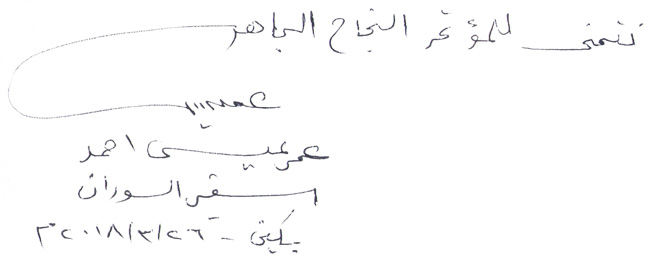 نتمنى للمؤتمر النجاح الباهر
عمر عيسى احمد
سفير السودان
بكين - ٢٠١٨/٣/٢٦م